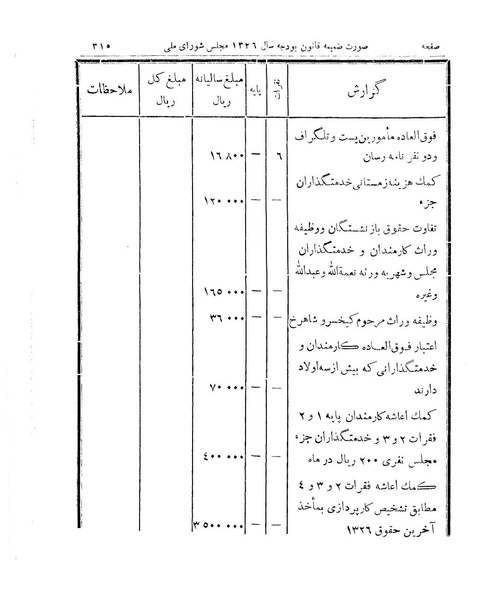 صفحه صورت ضمیمه قانون بودجه سال ۱۳۲۶ مجلس شورای ملی ۳۱۵
گزارش نفرات پایه مبلغ سالیانه ریال مبلغ کل ریال ملاحظات
فوق‌العاده مأمورین پست و تلگراف
و دو نفر نامه رسان ۶ — ۱۶ ۸۰۰
کمك هزینه زمستانی خدمتگذاران
جزء — — ۱۲۰ ۰۰۰
تفاوت حقوق بازنشستگان و وظیفه
وراث کارمندان و خدمتگذاران
مجلس و شهریه ورثه نعمة‌الله و عبدالله
و غیره — — ۱۶۵ ۰۰۰
وظیفه وراث مرحوم کیخسرو شاهرخ — — ۳۶ ۰۰۰
اعتبار فوق‌العاده کارمندان و
خدمتگذارانی که بیش از سه اولاد
دارند — — ۷۰ ۰۰۰
کمك اعاشه کارمندان پایه ۱ و ۲
فقرات ۲ و ۳ و خدمتگذاران جزء
مجلس نفری ۲۰۰ ریال در ماه — — ۴۰۰ ۰۰۰
کمك اعاشه فقرات ۲ و ۳ و ٤
مطابق تشخیص کارپردازی بمأخذ
آخرین حقوق ۱۳۲۶ — — ۳ ۵۰۰ ۰۰۰